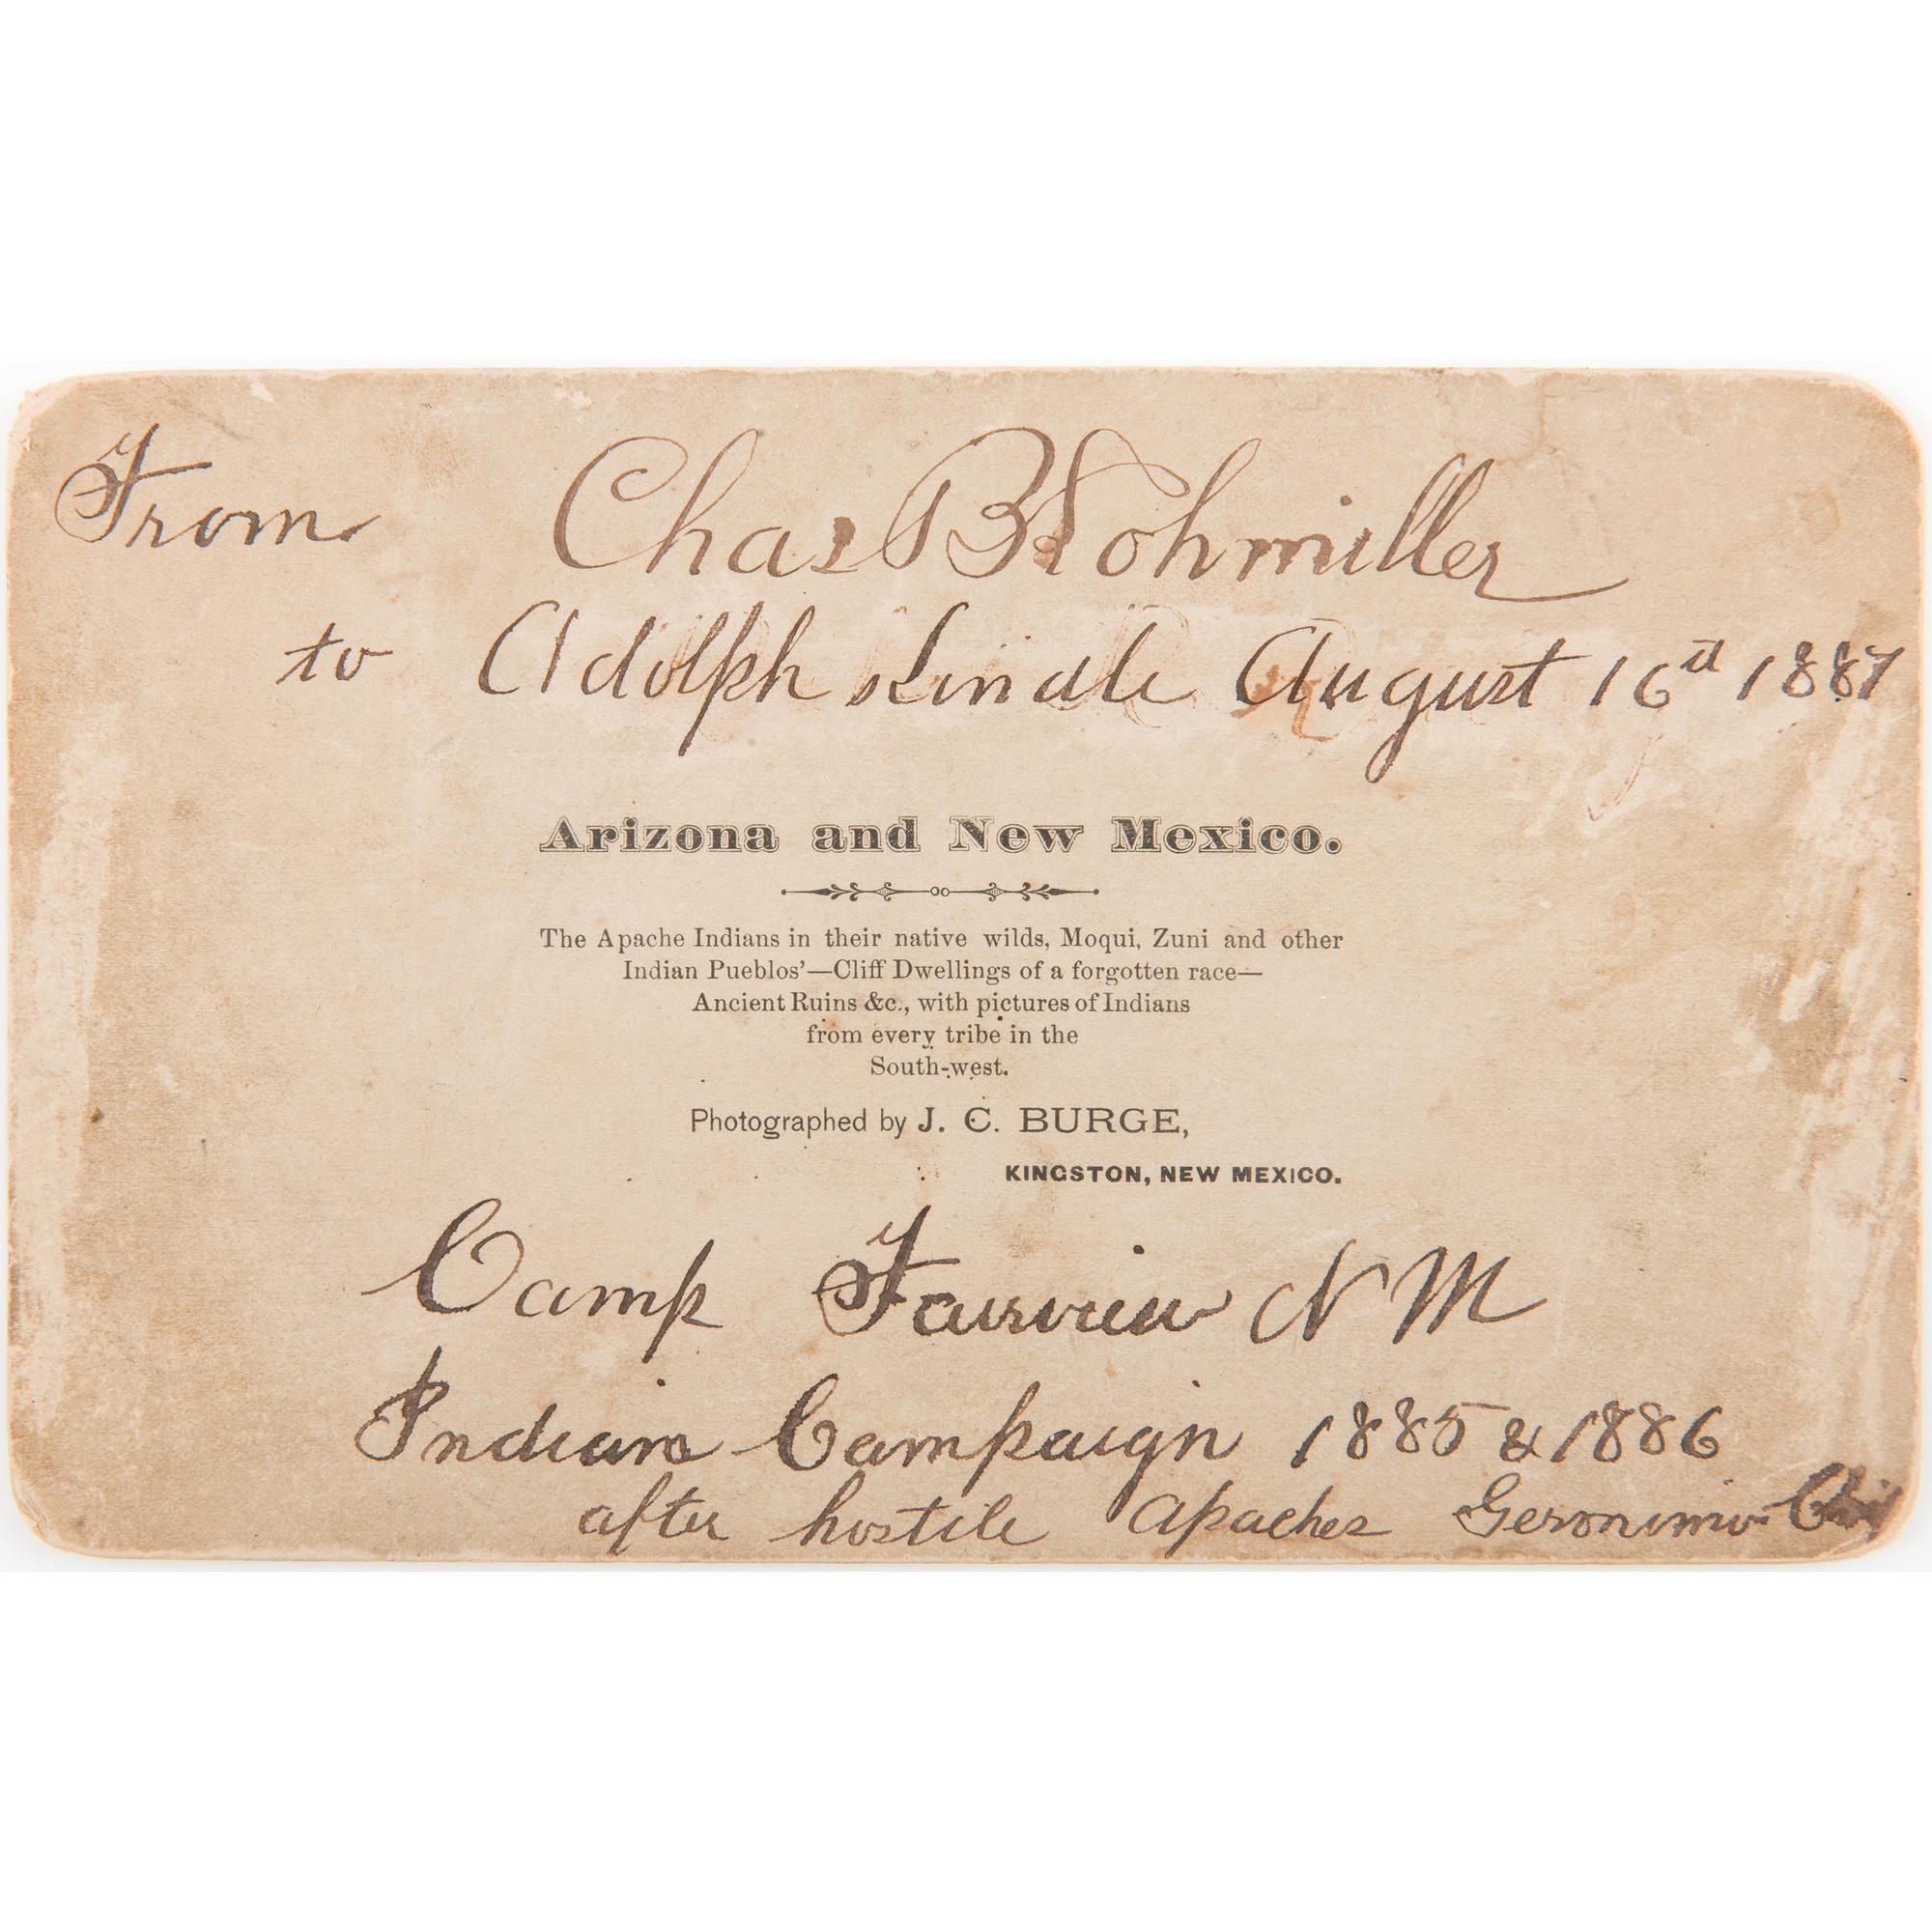 From Chas B Kohmiller
to Adolph Lindle August 16th 1887
Arizona and New Mexico.
The Apache Indians in their native wilds, Moqui, Zuni and other
Indian Pueblos'—Cliff Dwellings of a forgotten race—
Ancient Ruins &c., with pictures of Indians
from every tribe in the
South-west.
Photographed by J. C. BURGE,
KINGSTON, NEW MEXICO.
Camp Fairview N M
Indian Campaign 1885 & 1886
after hostile Apaches Geronimo